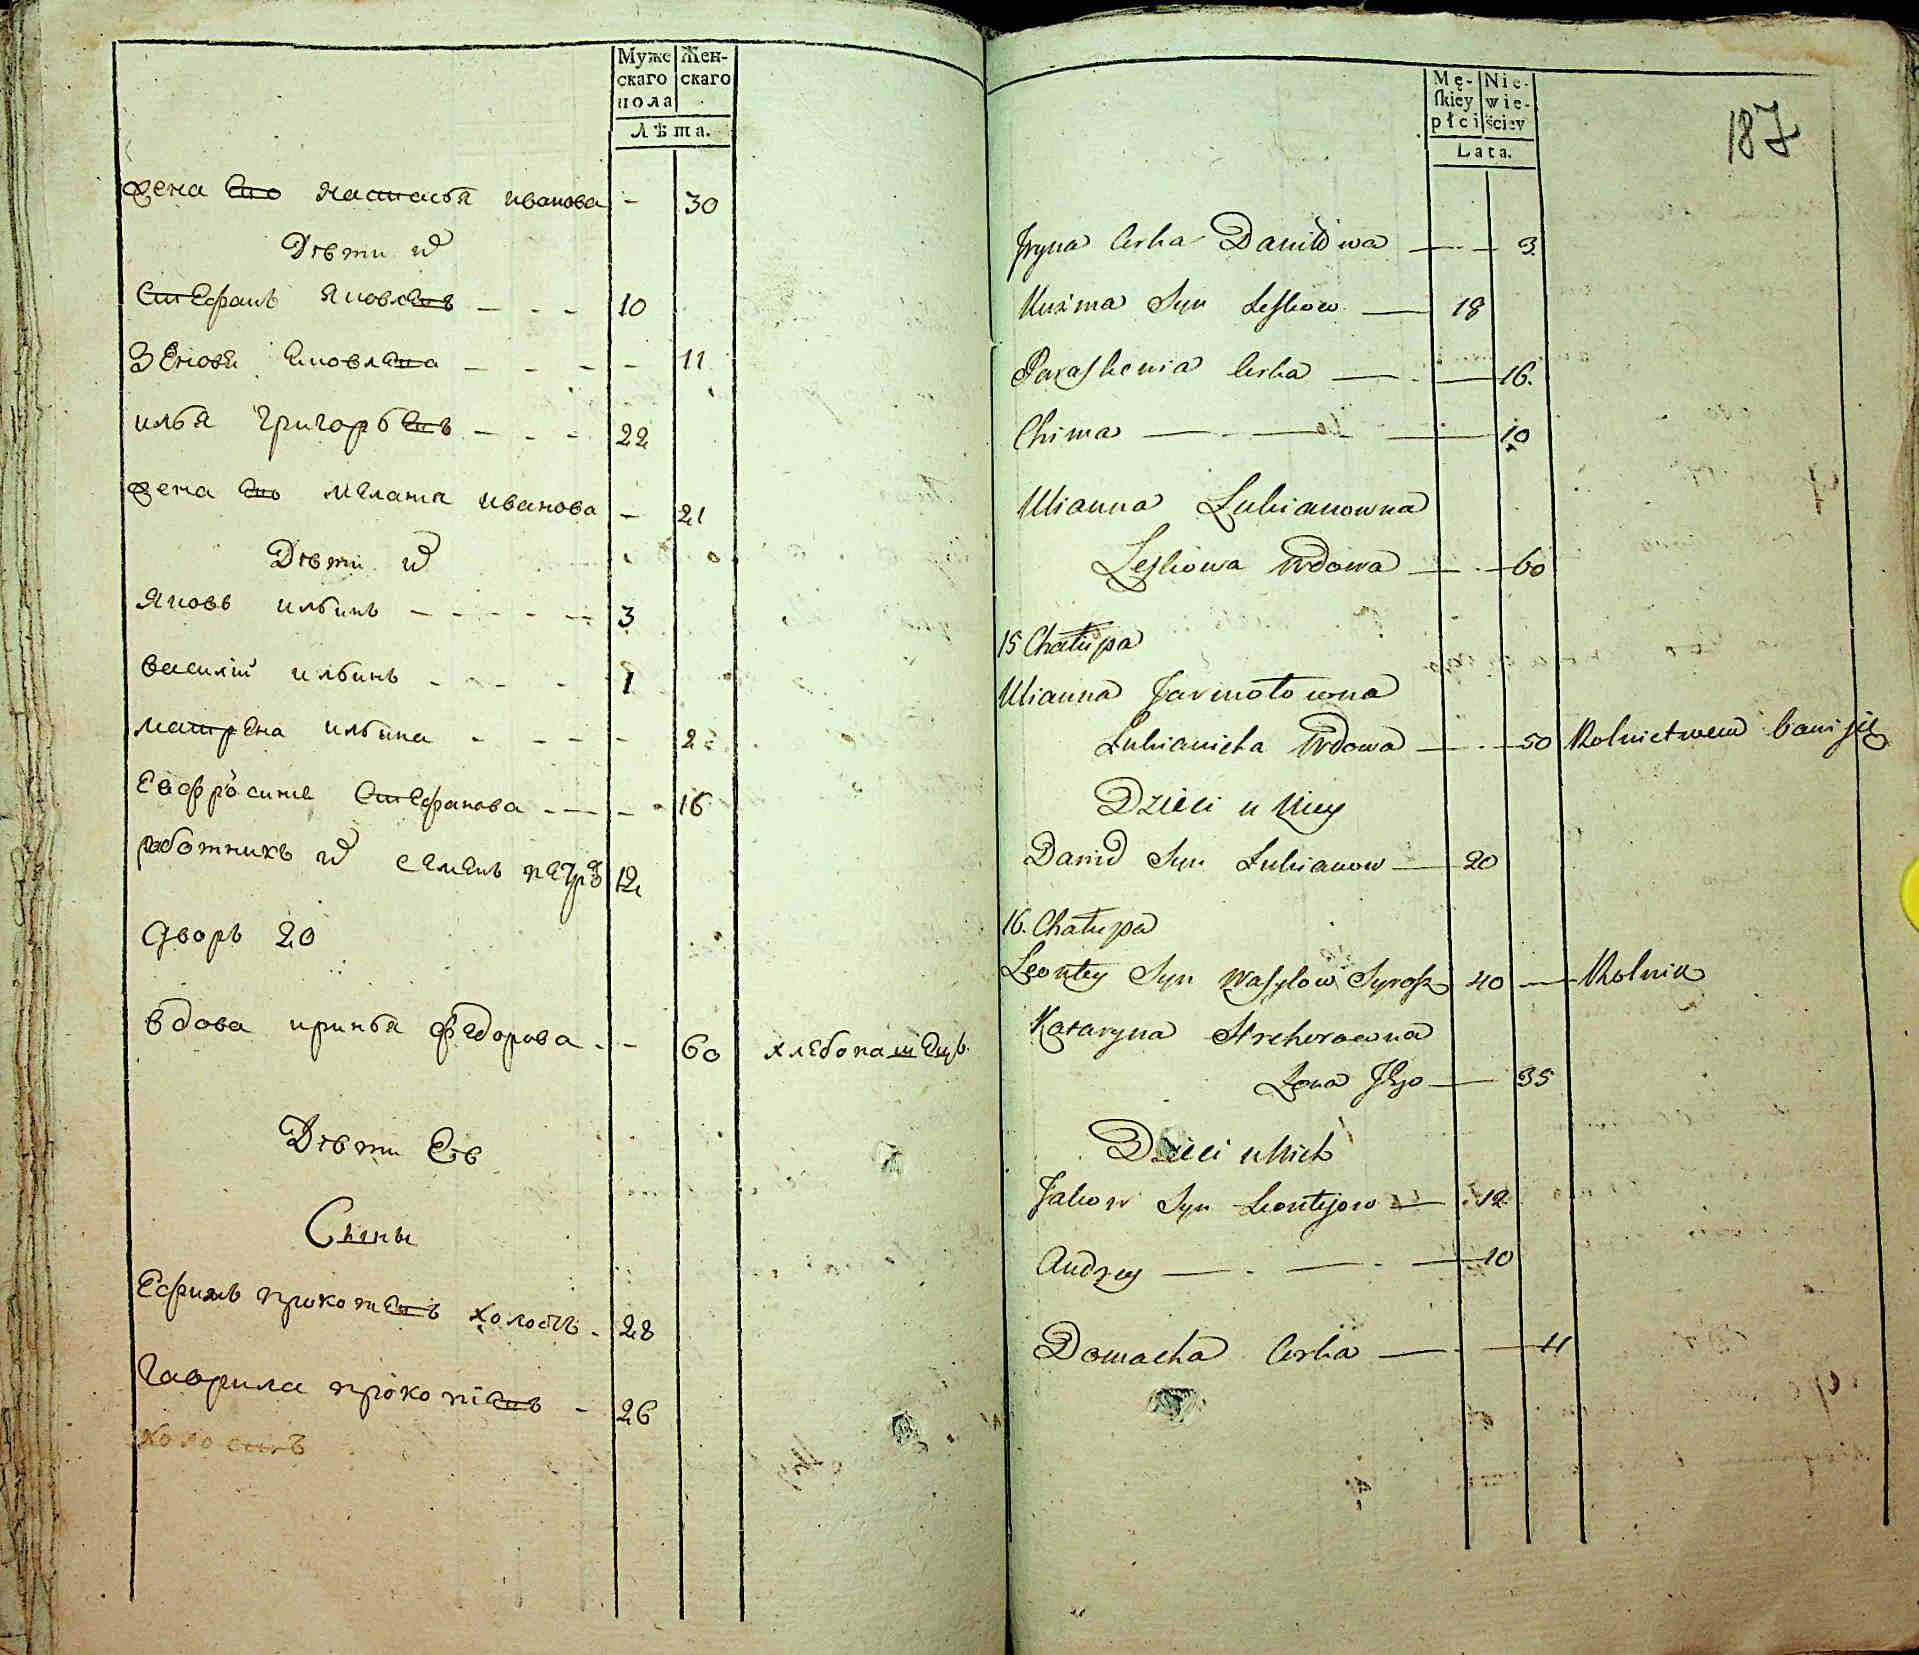 Муже Жен-
скаго скаго
пола
Лѣта.
жена его настасья иванова - 30
Дѣти их
Стефанъ яковлевъ - - - 10
Зеновѣя яковлева - - - - 11
илья григорьевъ - - - 22
жена его мелания иванова - 21
Дѣти их
яковъ ильинъ - - - - - 3
василій ильинъ - - - - 1
матрена ильина - - - - - 2
Евфросине Стефанова - - - - 16
работникъ их семенъ петров 12
дворъ 20
вдова иринья федорова - - 60 хлебопашецъ
Дѣти Ев
Сыны
Ефимъ прокопиевъ холостъ - 28
гаврила прокопиевъ - 26
холостъ
Mę- Nie-
ſkiey wie-
płci ściey
Lata.
187
Iryna Corka Daniłowa — - — 3
Kuźma Syn Leſkow — 18
Paraſkewia Corka — - — 16.
Chima — - — - — 10
Ulianna Lukianowna
Leſkowa Wdowa — - — 60
15 Chałupa
Ulianna Jarmołowna
Lukianicha Wdowa — - — 50 Rolnictwem bawi się
Dzieci u Niey
Daniło Syn Lukianow — 20
16. Chałupa
Leontey Syn Waſylow 40 — Rolnik
Kataryna
Żona Jego — 35
Dzieci u Nich
Jakow Syn Leontijow — 12
Andrzey — - — - — 10
Domacha Corka — - — 11